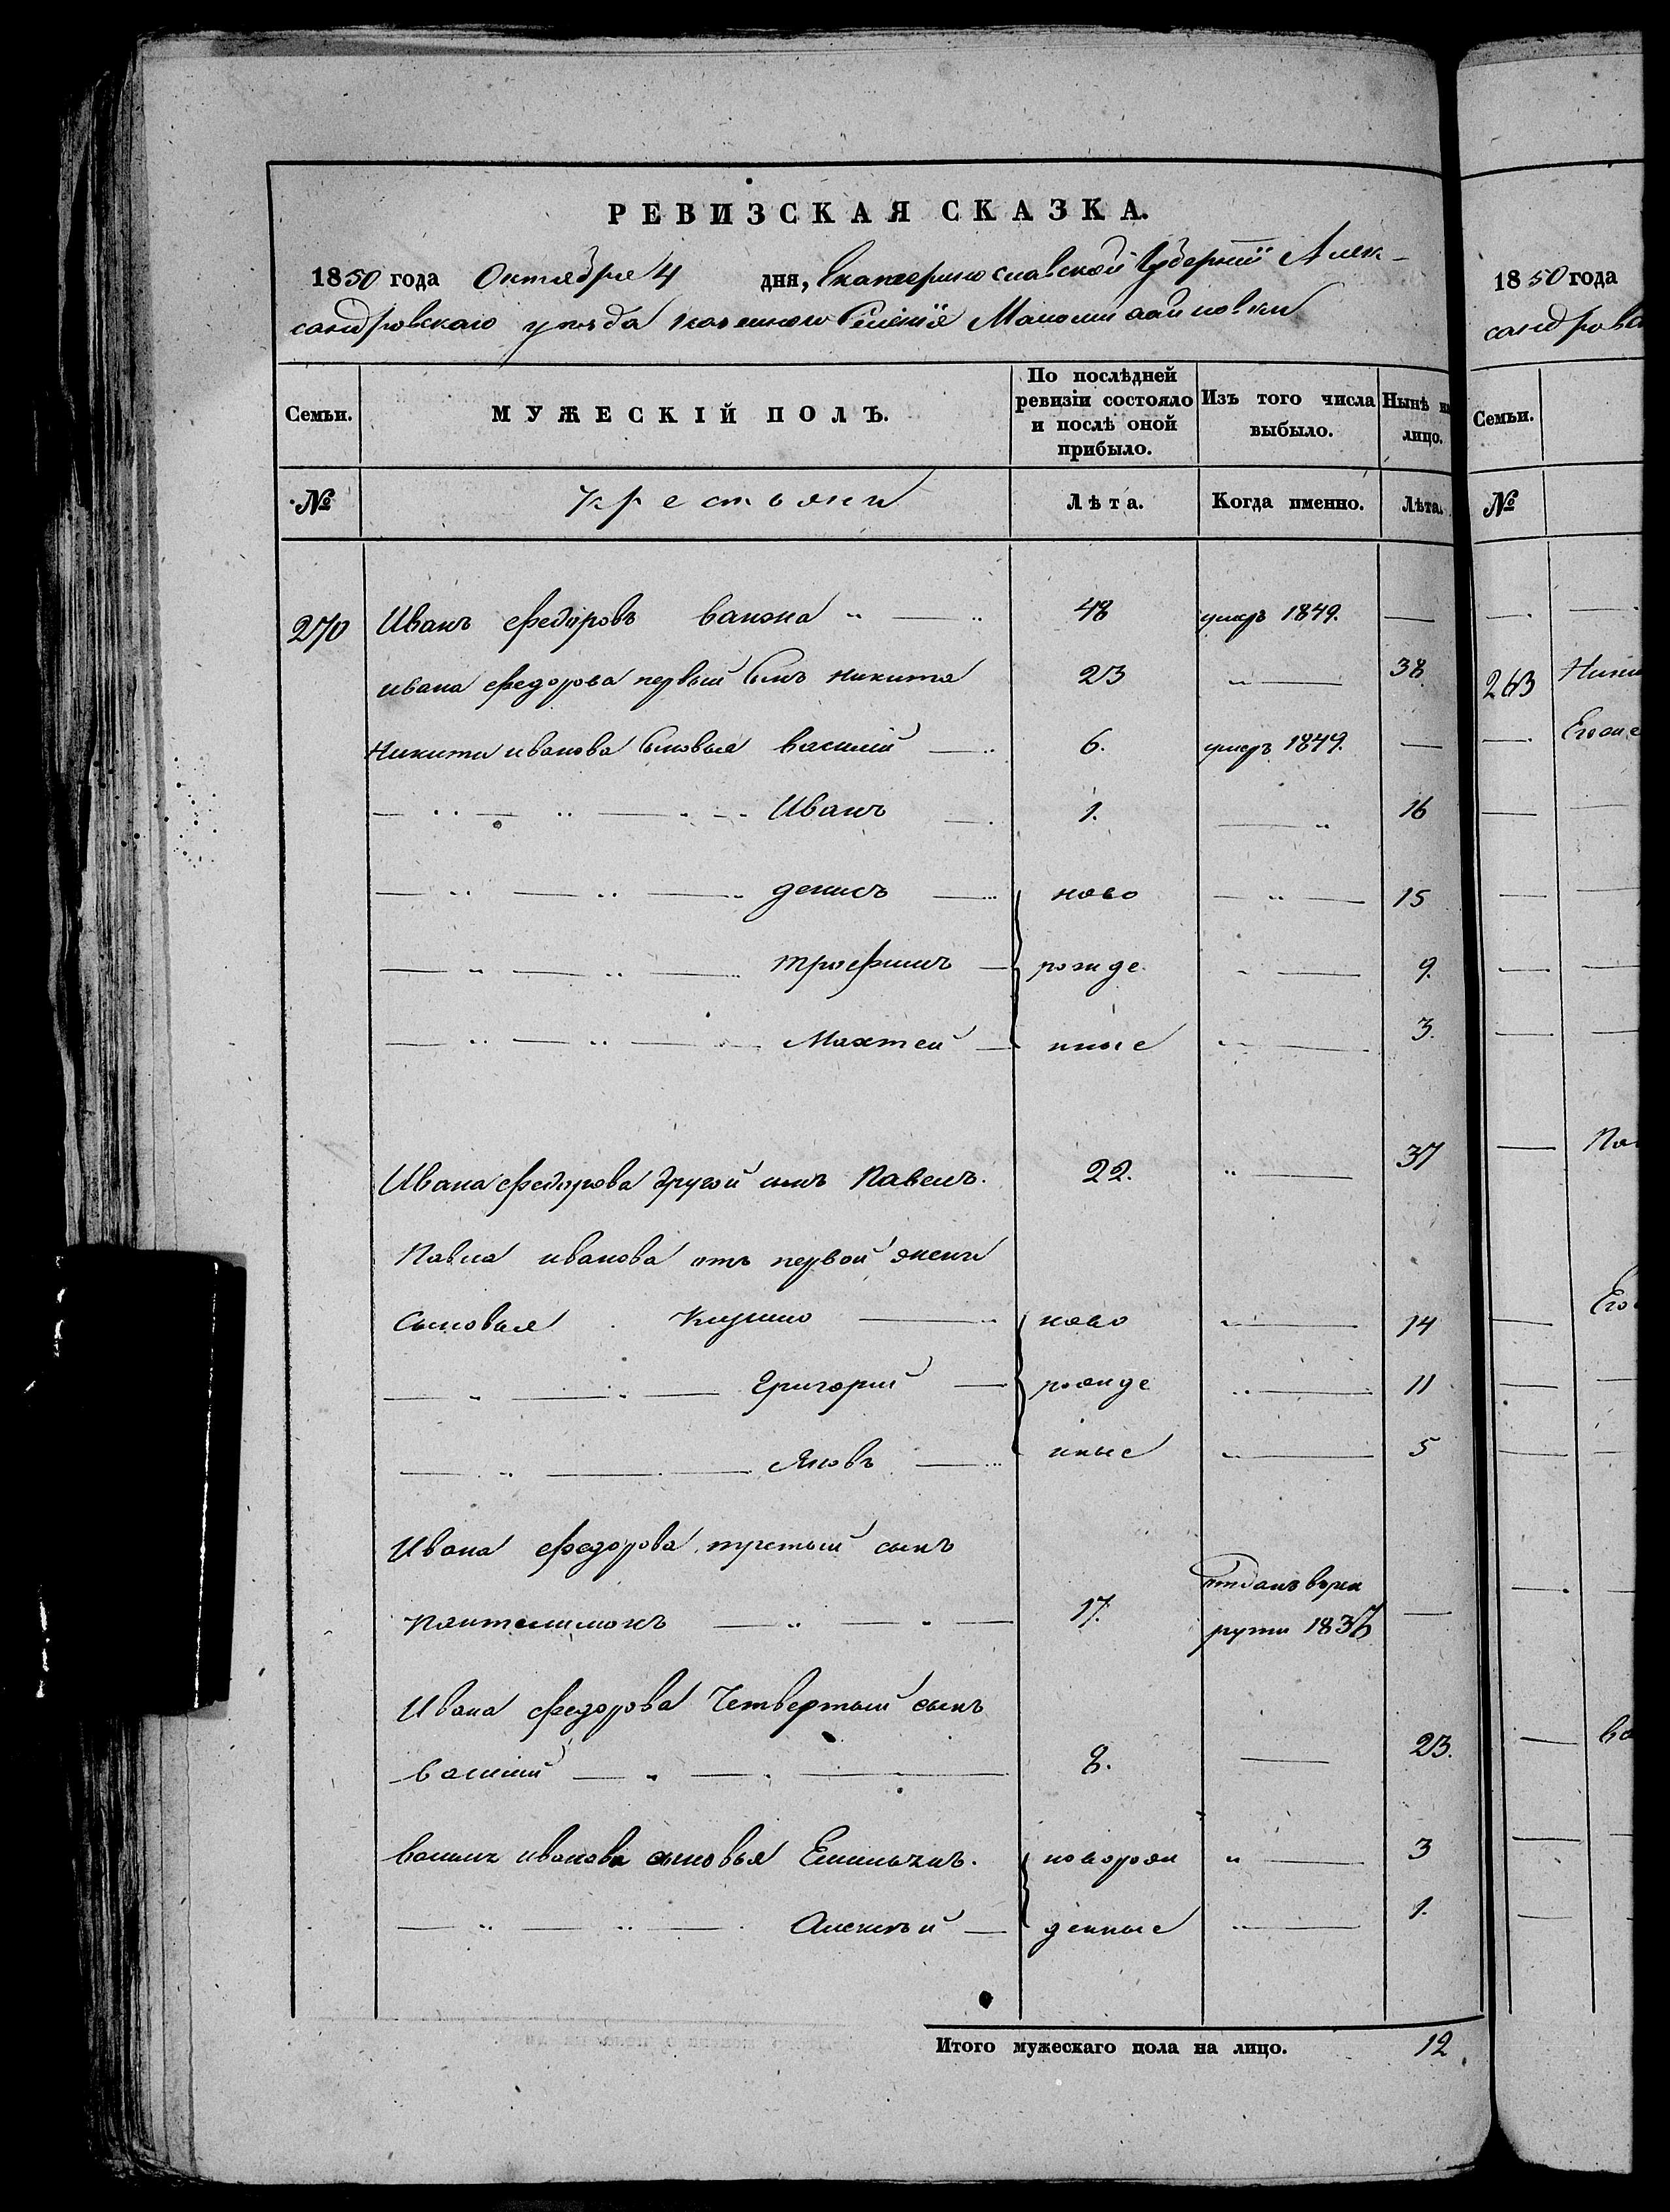 РЕВИЗСКАЯ СКАЗКА.
1850 года Октября 4 дня, Екатеринославской Губернии Алек-
сандровскаго уезда казеннаго Селения
Семьи. МУЖЕСКІЙ ПОЛЪ. По послѣдней ревизіи состояло и послѣ оной прибыло. Изъ того числа выбыло. Нынѣ на лицо.
№ Крестьяни Лѣта. Когда именно. Лѣта.
270 Иванъ Федоровъ 48 умеръ 1849. —
Ивана Федорова первый сынъ Никита 23 — 38
Никиты Иванова сыновья Василий — 6. умеръ 1849. —
Иванъ — 1. — 16
Денисъ — ново — 15
Трофимъ — рожде — 9.
Махтей — нные — 3.
Ивана Федорова другой сынъ Павелъ. 22. — 37
Павла Иванова отъ первой жени
Сыновья Кирило — ново — 14
Григорий — рожде — 11
Яковъ — нные — 5
Ивана Федорова третий сынъ
Пантелимонъ — 17. отданъ врек
рути 1836 —
Ивана Федорова Четвертый сынъ
Василий — 8. — 23.
Василия Иванова сыновья Емильянъ. новорож — 3
Алексѣй — денные — 1.
Итого мужескаго пола на лицо. 12
1850 года
сандровс
Семьи.
№
263 Ники
Его
Па
Его
Ва